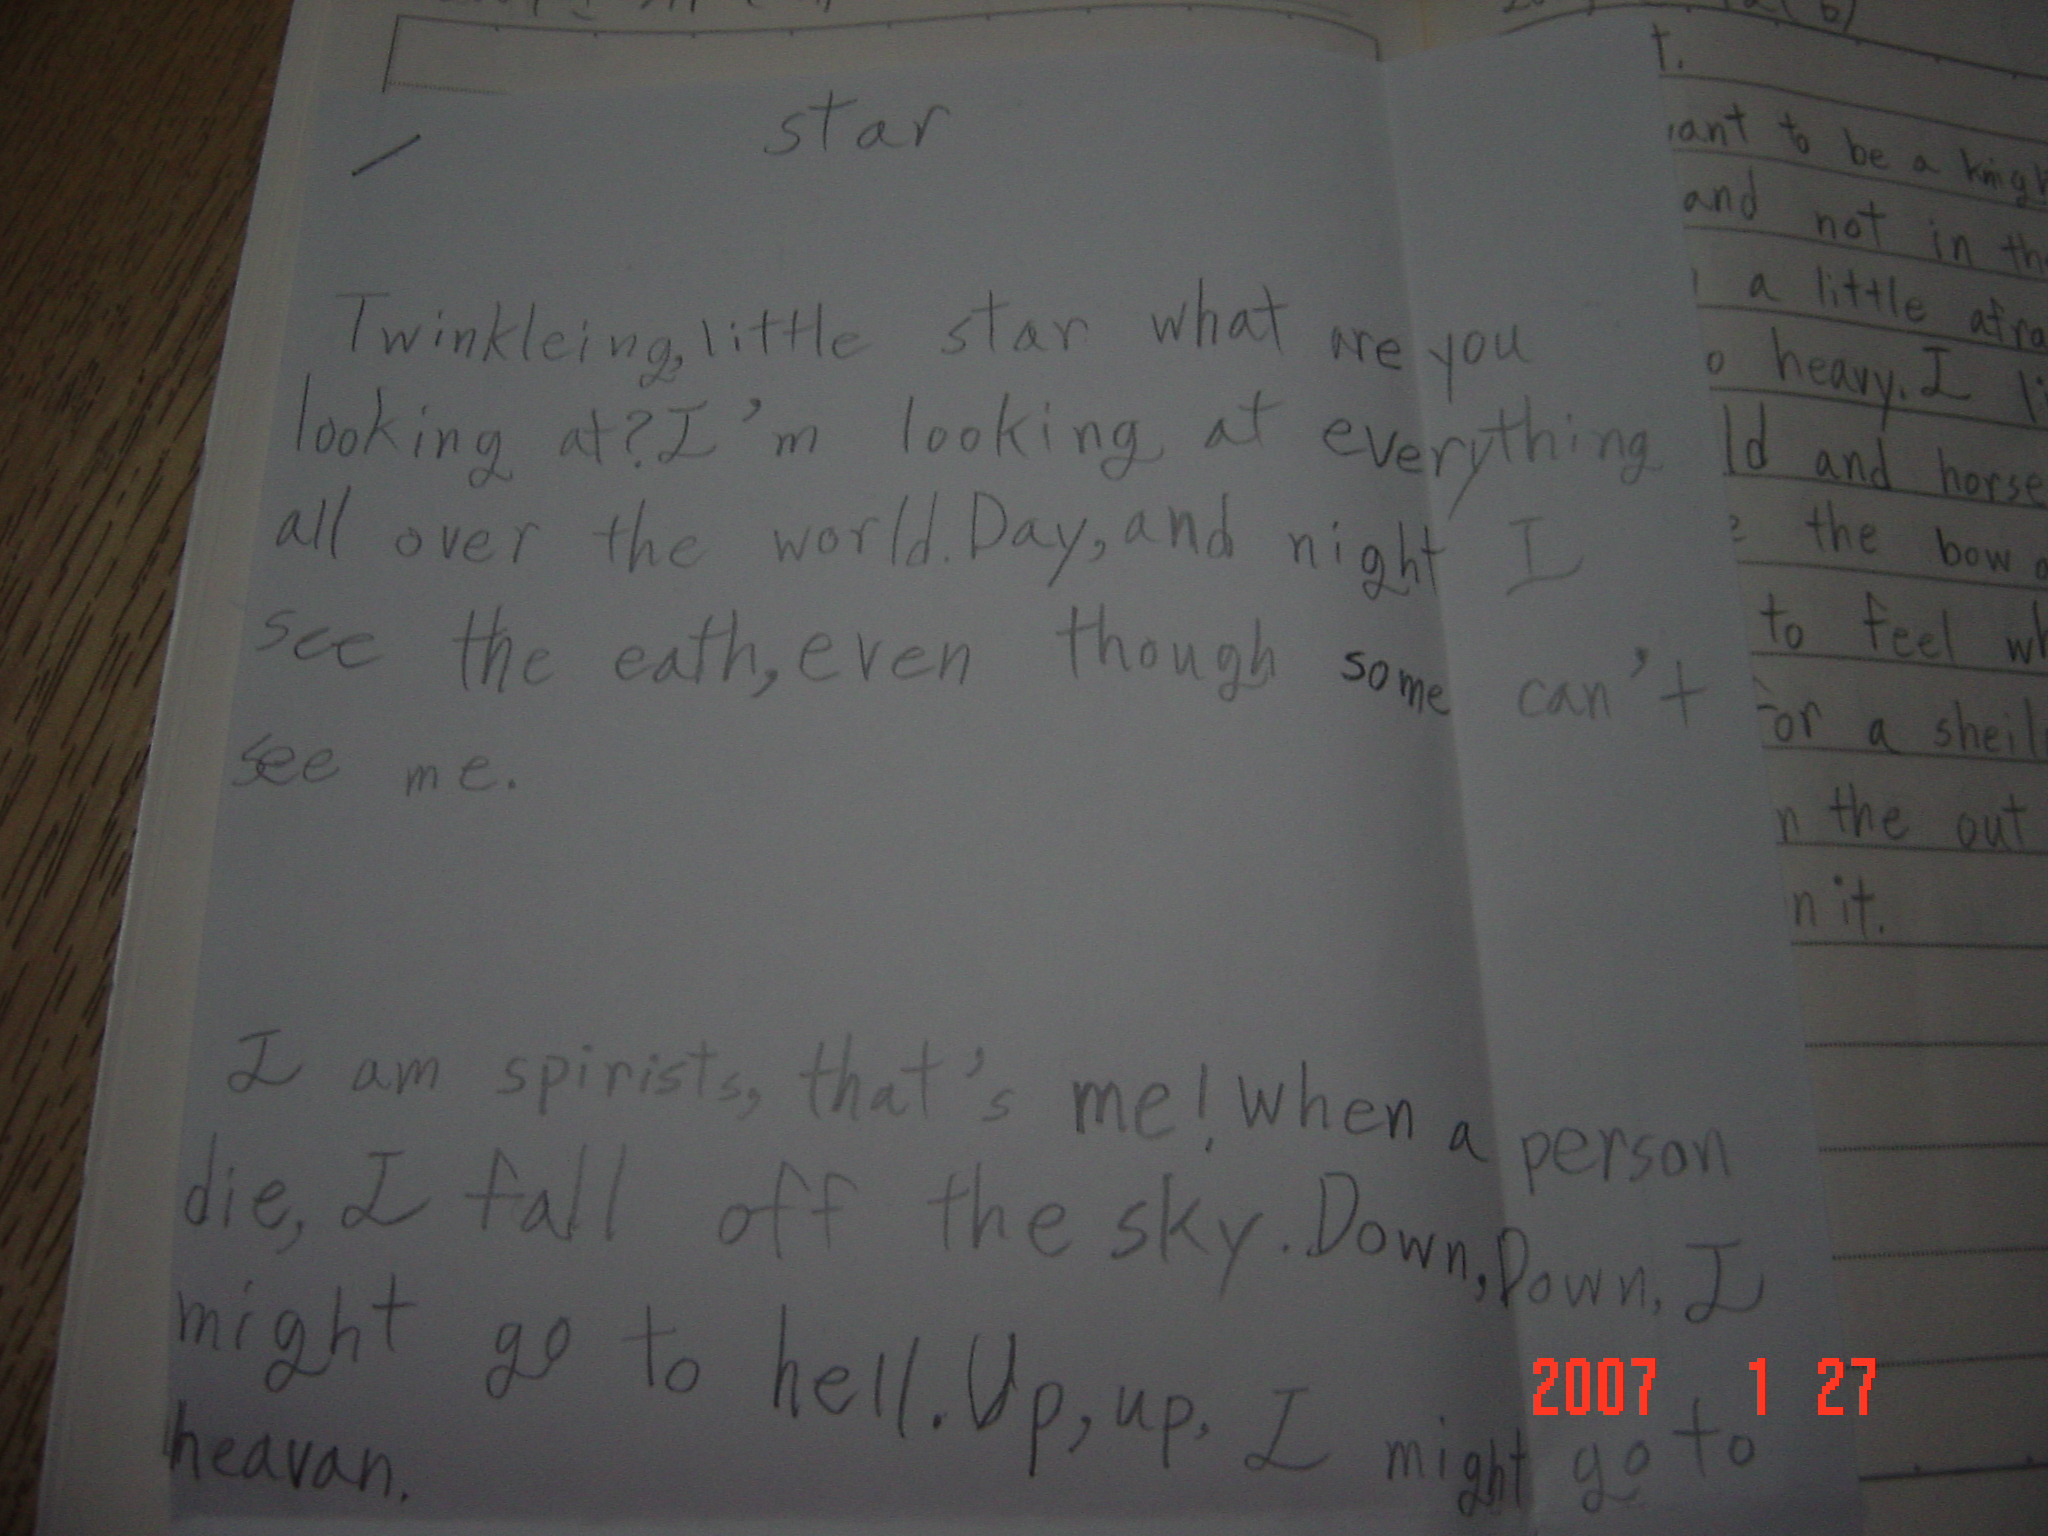 star
Twinkleing, little star what are you
looking at? I'm looking at everything
all over the world. Day, and night I
see the eath, even though some can't
see me.
I am spirists, that's me! When a person
die, I fall off the sky. Down, Down, I
might go to hell. Up, up, I might go to
heavan.
t.
to be a
and not in
a little
heavy. I
and
the bow
to feel
a
the out
it.
2007 1 27